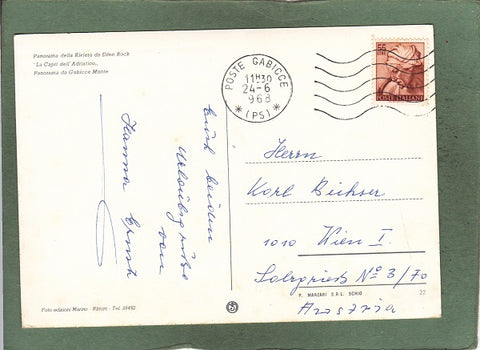 Panorama della Riviera da Eden Rock
"La Capri dell'Adriatico„
Panorama da Gabicce Monte
Euch beiden
Urlaubsgrüße
von
Hanna
POSTE GABICCE
11H30
24-6
968
* (PS) *
55
POSTE ITALIANE
Herrn
Karl
1010 Wien I.
Salzgries Nº 3/70
Austria
Foto edizioni Marzo - Rimini - Tel.
P. MARZARI S.R.L. SCHIO
22